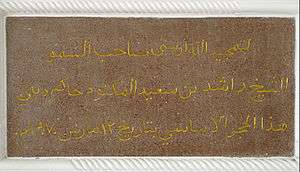 صاحب السمو
الشيخ راشد بن سعيد المكتوم حاكم دبي
هذا الحجر الاساسي بتاريخ ١٢ مارس